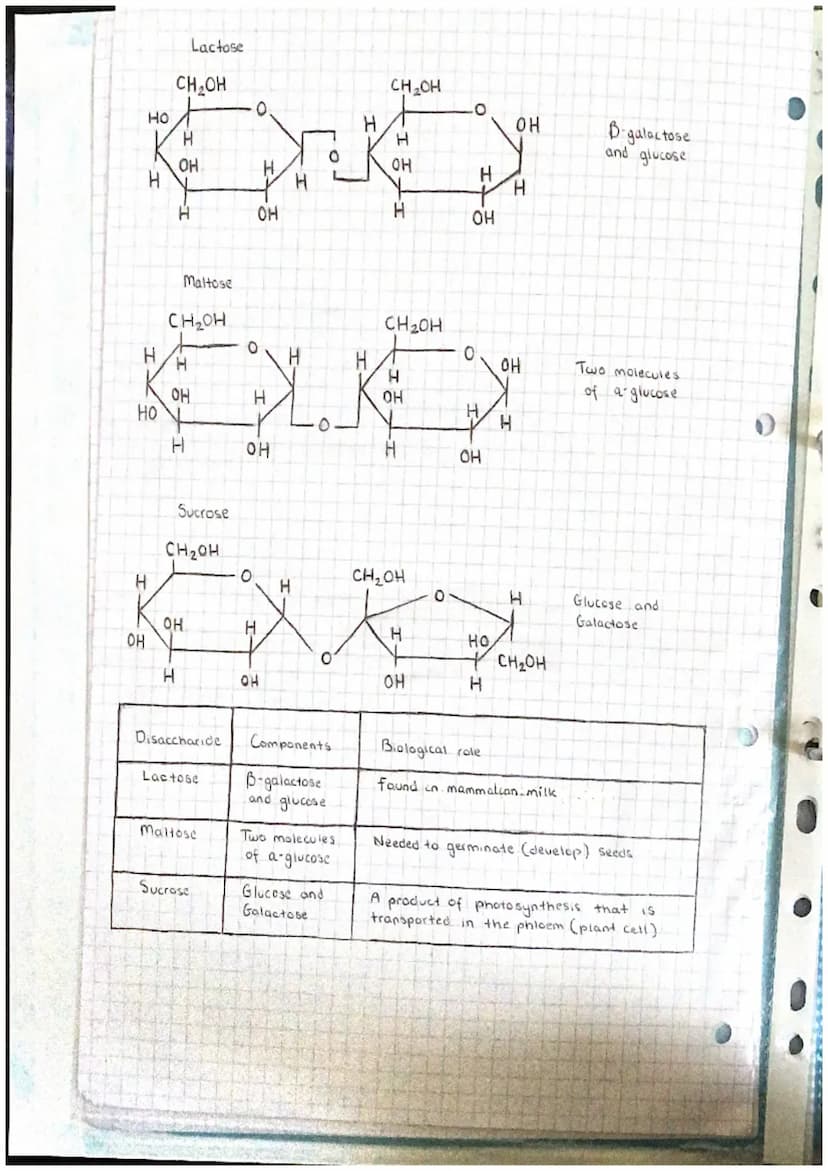 Lactose
CH₂OH
CH₂OH
HO
O
O
H
OH
H
H
β-galactose
and glucose
OH
H
O
OH
H
H
H
H
H
OH
H
OH
Maltose
CH₂OH
CH₂OH
H
O
H
H
O
OH
H
H
Two molecules
of α-glucose
OH
H
OH
HO
H
H
O
H
OH
H
OH
Sucrose
CH₂OH
H
O
H
CH₂OH
O
H
Glucose and
Galactose
OH
H
H
HO
OH
O
CH₂OH
H
OH
OH
H
Disaccharide Components Biological role
Lactose β-galactose found in mammalian milk
and glucose
Maltose Two molecules Needed to germinate (develop) seeds
of α-glucose
Sucrose Glucose and A product of photosynthesis that is
Galactose transported in the phloem (plant cell)